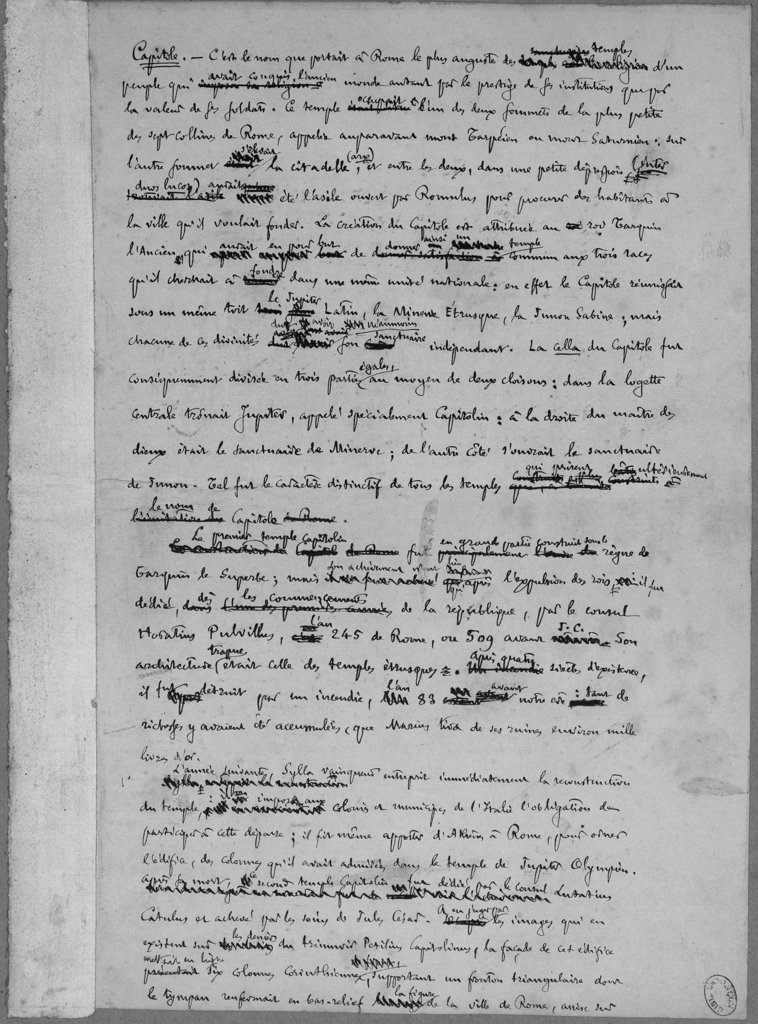 Capitole. — C'est le nom que portait à Rome le plus auguste des temples d'un
peuple qui avait conquis l'ancien monde autant par le prestige de ses institutions que par
la valeur de ses soldats. Ce temple occupait l'un des deux sommets de la plus petite
des sept collines de Rome, appelée auparavant mont Tarpéien ou mont Saturnien : sur
l'autre sommet s'élevait la citadelle (arx), et entre les deux, dans une petite dépression (inter
duos lucos) avait été l'asile ouvert par Romulus pour procurer des habitants à
la ville qu'il voulait fonder. La création du Capitole est attribuée au roi Tarquin
l'Ancien, qui aurait eu pour but de donner ainsi un temple commun aux trois races
qu'il cherchait à fondre dans une même unité nationale : en effet le Capitole réunissait
sous un même toit le Jupiter Latin, la Minerve Étrusque, la Junon Sabine ; mais
chacune de ces divinités avait néanmoins son sanctuaire indépendant. La cella du Capitole fut
conséquemment divisée en trois parties égales, au moyen de deux cloisons : dans la logette
centrale trônait Jupiter, appelé spécialement Capitolin : à la droite du maître des
dieux était le sanctuaire de Minerve ; de l'autre côté s'ouvrait le sanctuaire
de Junon. Tel fut le caractère distinctif de tous les temples qui prirent ultérieurement
le nom de Capitole.
Le premier temple Capitolin fut en grande partie construit sous le règne de
Tarquin le Superbe ; mais son achèvement n'eut lieu qu'après l'expulsion des rois : il fut
dédié, dès les commencements de la république, par le consul
Horatius Pulvillus, l'an 245 de Rome, ou 509 avant J.-C. Son
architecture était celle des temples étrusques. Après quatre siècles d'existence,
il fut détruit par un incendie, l'an 83 avant notre ère : tant de
richesses y avaient été accumulées, que Marius tira de ses ruines environ mille
livres d'or.
L'année suivante, Sylla vainqueur entreprit immédiatement la reconstruction
du temple, imposa aux colonies et municipes de l'Italie l'obligation de
participer à cette dépense ; il fit même apporter d'Athènes à Rome, pour orner
l'édifice, des colonnes qu'il avait admirées dans le temple de Jupiter Olympien.
Après sa mort, le second temple Capitolin fut dédié par le consul Lutatius
Catulus et achevé par les soins de Jules César. A en juger par les images qui en
existent sur les deniers du triumvir Petilius Capitolinus, la façade de cet édifice
mettait en ligne six colonnes corinthiennes, supportant un fronton triangulaire dont
le tympan renfermait en bas-relief la figure de la ville de Rome, assise sur